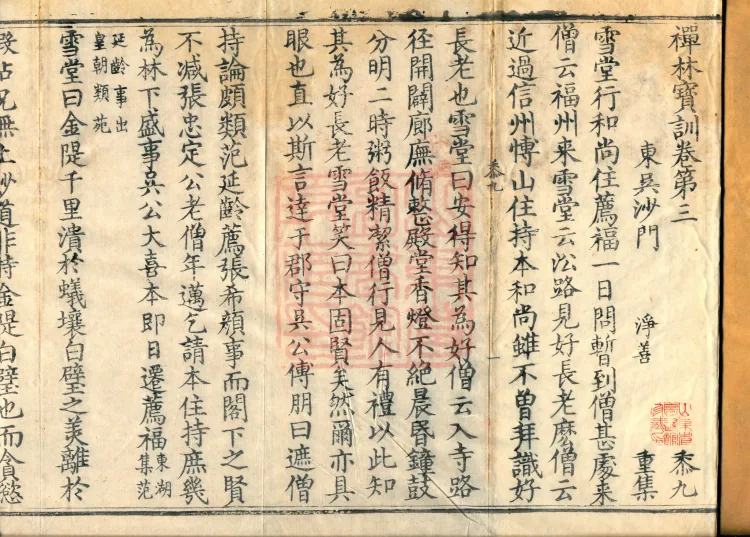 禪林寶訓卷第三 黍九
東吳沙門 淨善 重集
雪堂行和尚住薦福一日問暫到僧甚處來
僧云福州來雪堂云沿路見好長老麼僧云
近過信州博山住持本和尚雖不曾拜識好
黍九 一
長老也雪堂曰安得知其為好僧云入寺路
徑開闢廊廡脩整殿堂香燈不絕晨昏鐘鼓
分明二時粥飯精潔僧行見人有禮以此知
其為好長老雪堂笑曰本固賢矣然爾亦具
眼也直以斯言達于郡守吳公傅朋曰遮僧
持論頗類范延齡薦張希顏事而閤下之賢
不減張忠定公老僧年邁乞請本住持庶幾
為林下盛事吳公大喜本即日遷薦福東湖集范
延齡事出皇朝類苑
雪堂曰金隄千里潰於蟻壤白璧之美離於
瑕玷況無上妙道非特金隄白璧也而貪慾